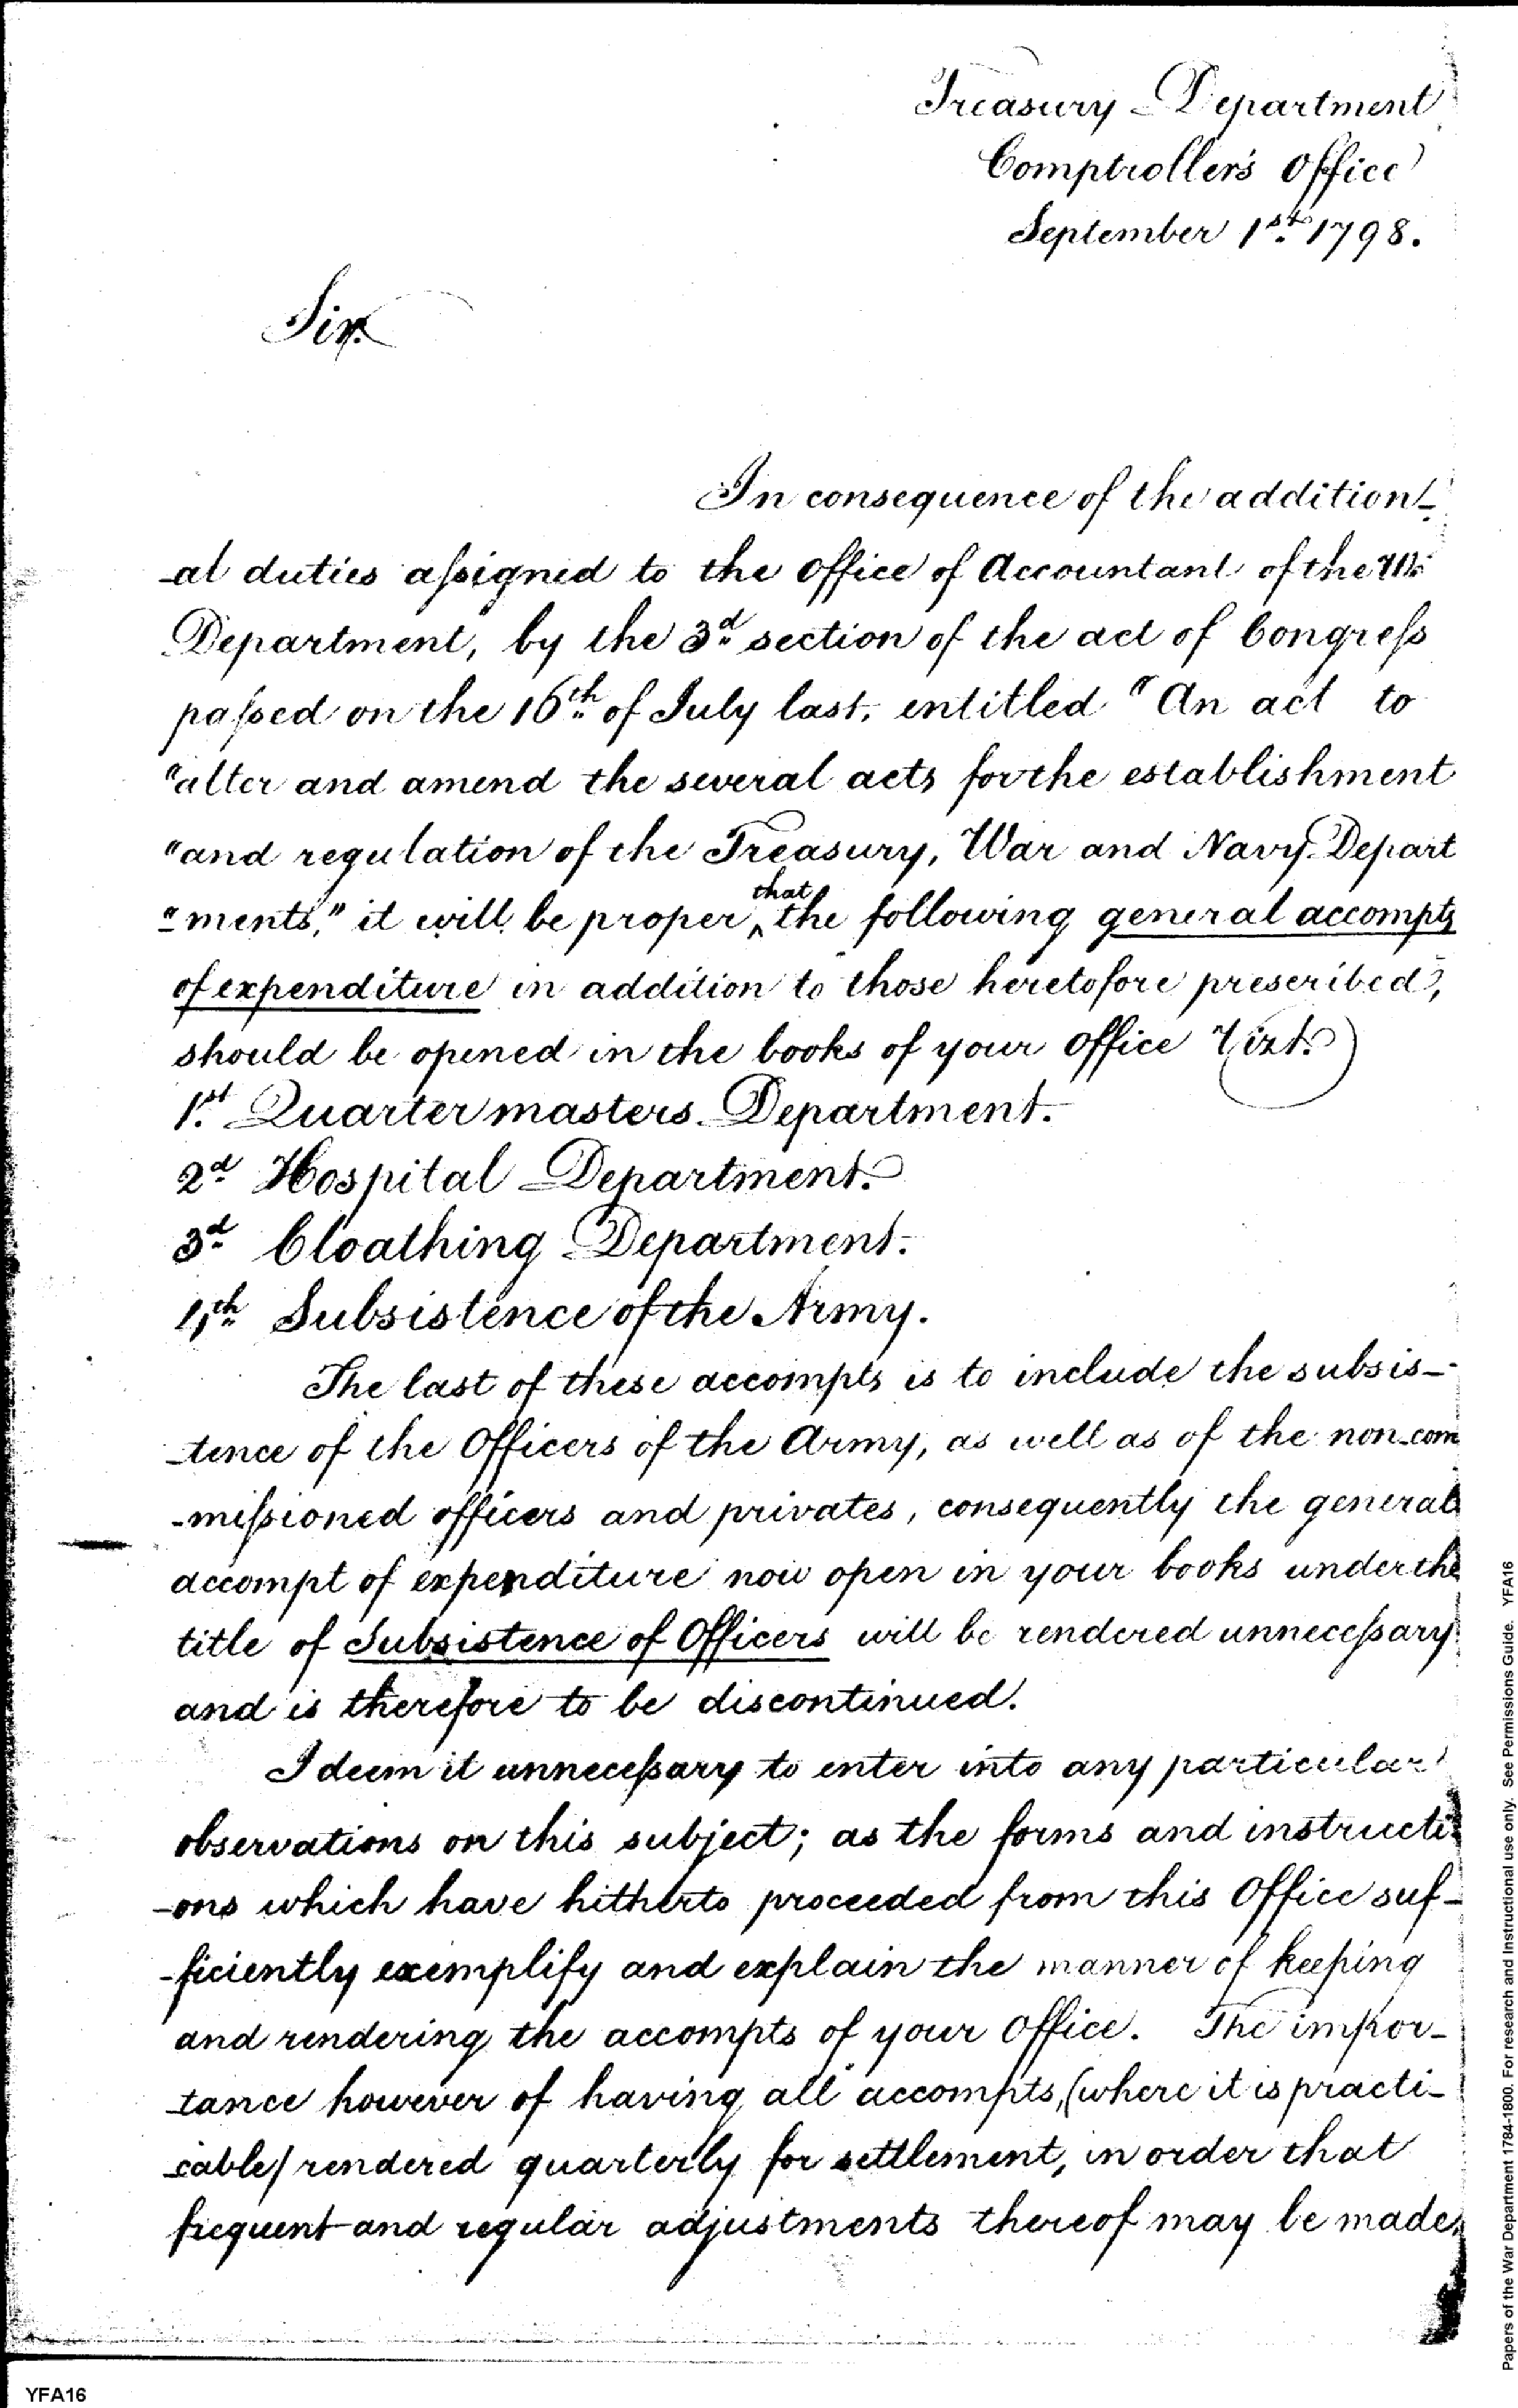 Treasury Department
Comptroller's Office
September 1st 1798.
Sir.
In consequence of the addition-
-al duties assigned to the Office of Accountant of the
Department, by the 3d section of the act of Congress
passed on the 16th of July last, entitled "An act to
"alter and amend the several acts for the establishment
"and regulation of the Treasury, War and Navy Depart
"ments," it will be proper that the following general accompts
of expenditure in addition to those heretofore prescribed,
should be opened in the books of your Office Vizt.
1st Quarter masters Department.
2d Hospital Department.
3d Cloathing Department.
4th Subsistence of the Army.
The last of these accompts is to include the subsis-
-tence of the Officers of the Army, as well as of the non-com
-missioned officers and privates, consequently the general
accompt of expenditure now open in your books under the
title of Subsistence of Officers will be rendered unnecessary
and is therefore to be discontinued.
I deem it unnecessary to enter into any particular
observations on this subject; as the forms and instructi
-ons which have hitherto proceeded from this Office suf-
-ficiently exemplify and explain the manner of keeping
and rendering the accompts of your Office. The impor-
-tance however of having all accompts, (where it is practi-
-cable) rendered quarterly for settlement, in order that
frequent and regular adjustments thereof may be made,
Papers of the War Department 1784-1800. For research and Instructional use only. See Permissions Guide. YFA16
YFA16